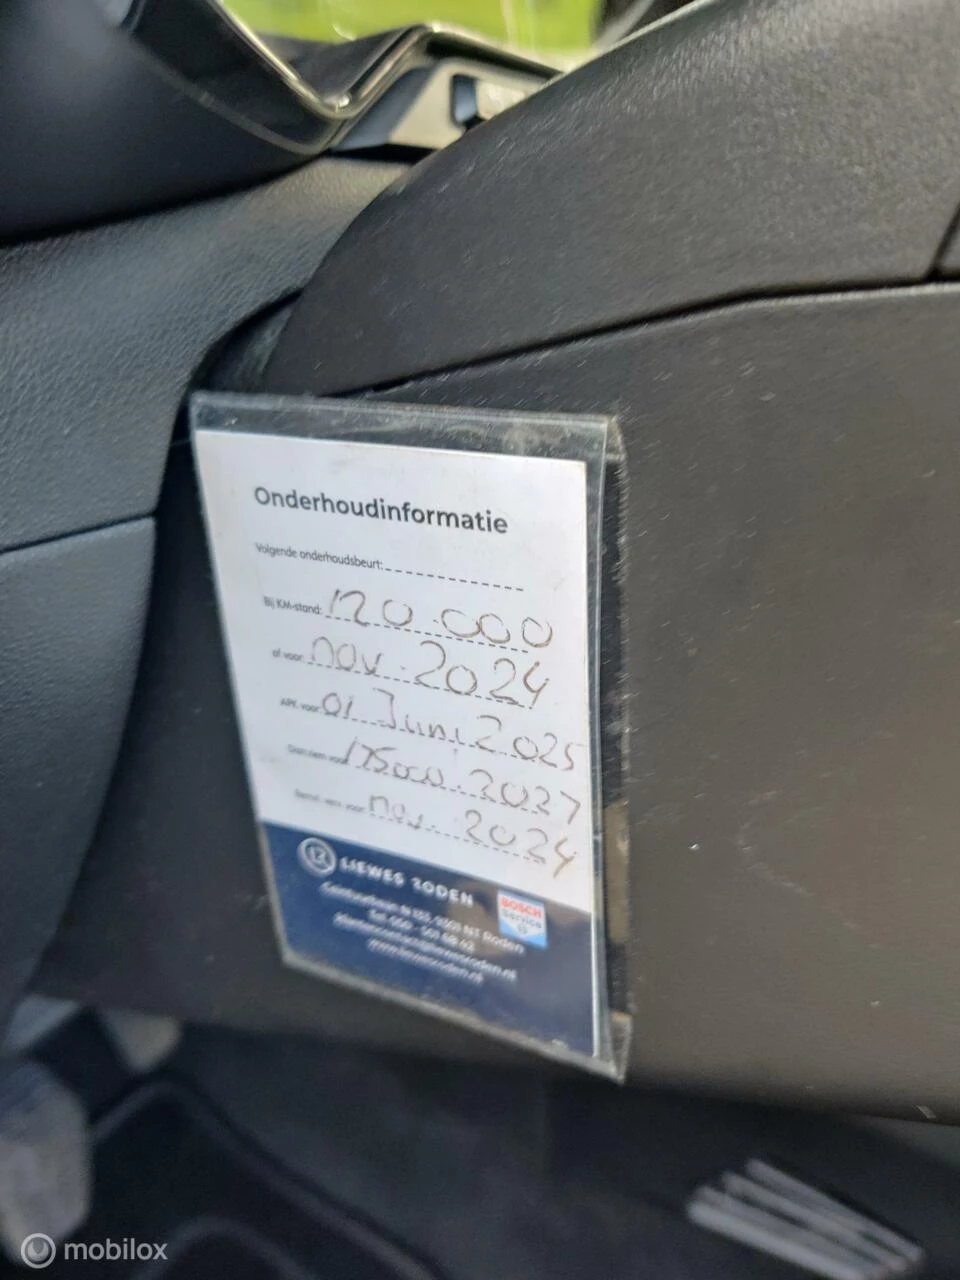 Onderhoudinformatie
Volgende onderhoudsbeurt:
Bij KM-stand: 120.000
of voor: nov. 2024
APK. voor: 01 Juni 2025
Distr.riem voor 175000. 2027
voor: nov. 2024
LIEWES RODEN
BOSCH
Service
Ceintuurbaan N 133, 9301 NT Roden
Tel. 050 - 501 68 42
www.liewesroden.nl
mobilox